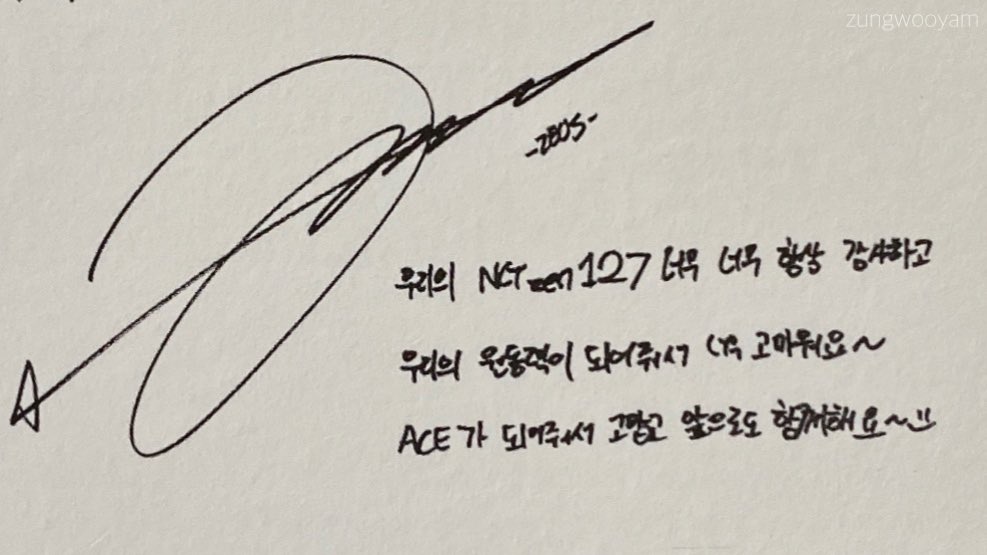 zungwooyam
우리의 NCTzen 127 너무 너무 항상 감사하고
우리의 원동력이 되어줘서 너무 고마워요~
ACE가 되어줘서 고맙고 앞으로도 함께해요~